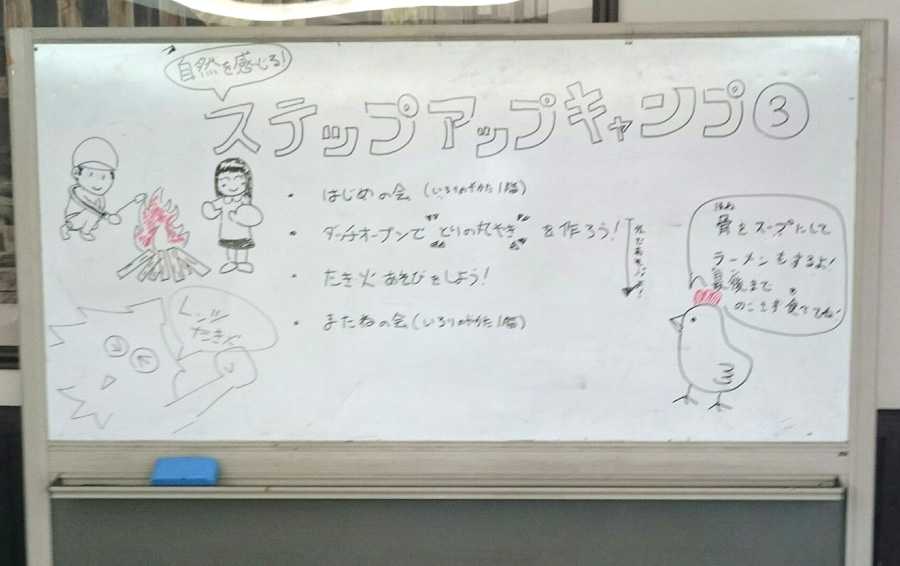 自然を感じる!
ステップアップキャンプ③
・ はじめの会 (いろりのかた1階)
・ ダッチオーブンで"とりの丸やき"を作ろう!
・ たき火あそびをしよう!
・ またねの会 (いろりのかた1階)
ほね
骨をスープにして
ラーメンもするよ!
最後まで
のこさず食べてね!